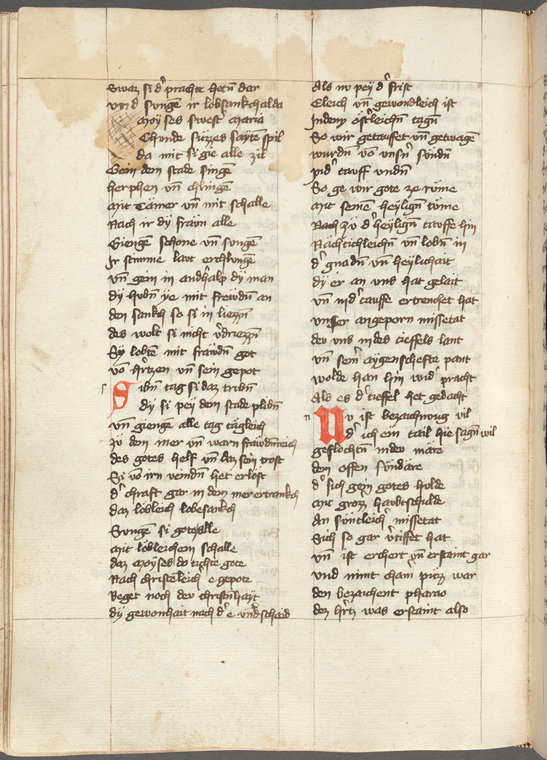 Swaz si d' prachte hetn dar
vnd sunge ir lobsankh alda
moyses swest' maria
Chunde suzzes sayte spil
da mit si gie alle zil
Bein dem stade singe
herphen vn chlinge
mit Tamer vn mit schalle
Nach ir dy frawn alle
Gienge schone vn sunge
Ir stimme lavt erchlunge
vn gein in andhalp dy man
dy hubn ye mit frewdn an
den sankh so si in liezzn
des wolt si nicht v'driezzn
Sy lobte mit frawdn got
vo h'tzen vn sein gepot
Sibn tag si daz tribn
dy si pey dem stade plibn
vn gienge alle tag taglich
zu dem mer vn warn frawdnreich
des gotes helf vn den sein trost
Si vo irn veindn het erlost
d' chraft gar in dem mer ertrankch
daz lobleich lobesankch
Sunge si gote alle
mit lobleichem schalle
daz moyses do tichte gote
Nach christenleich e gepote
Beget noch dev christnhayt
dy gewonhait nach d' e vnd'schaid
Als nv pey d' frist
Eleich vn gewondleich ist
Inden ostleichn tagn
So wir getauffet vn getwage
wurdn vo vnsn sundn
pid' tauff vndn
So ge wir gote ze rume
mit seine heylign tume
Nach zu d' heylign tauffe hin
Nachtichleichn vn lobn in
d' gnadn vn heylichait
dy er an vns hat gelait
vn in d' tauffe ertrenchet hat
vnser angeporn missetat
dev vns indes tieffels lant
vn sein aygenschefte pant
wolde han hin wid' pracht
Als es d' tieffel het gedacht
Nv ist bezaichnung vil
d' ich ein tail hie sagn wil
geflochtn indev mare
den offen sundare
d' sich gein gotes hulde
mit groz havbtschulde
An suntleich' missetat
Sich so gar v'tiffet hat
vn ist erhert vn erstaint gar
vnd nimt cham puzz war
den bezaichent pharao
dez h'tz was erstaint also